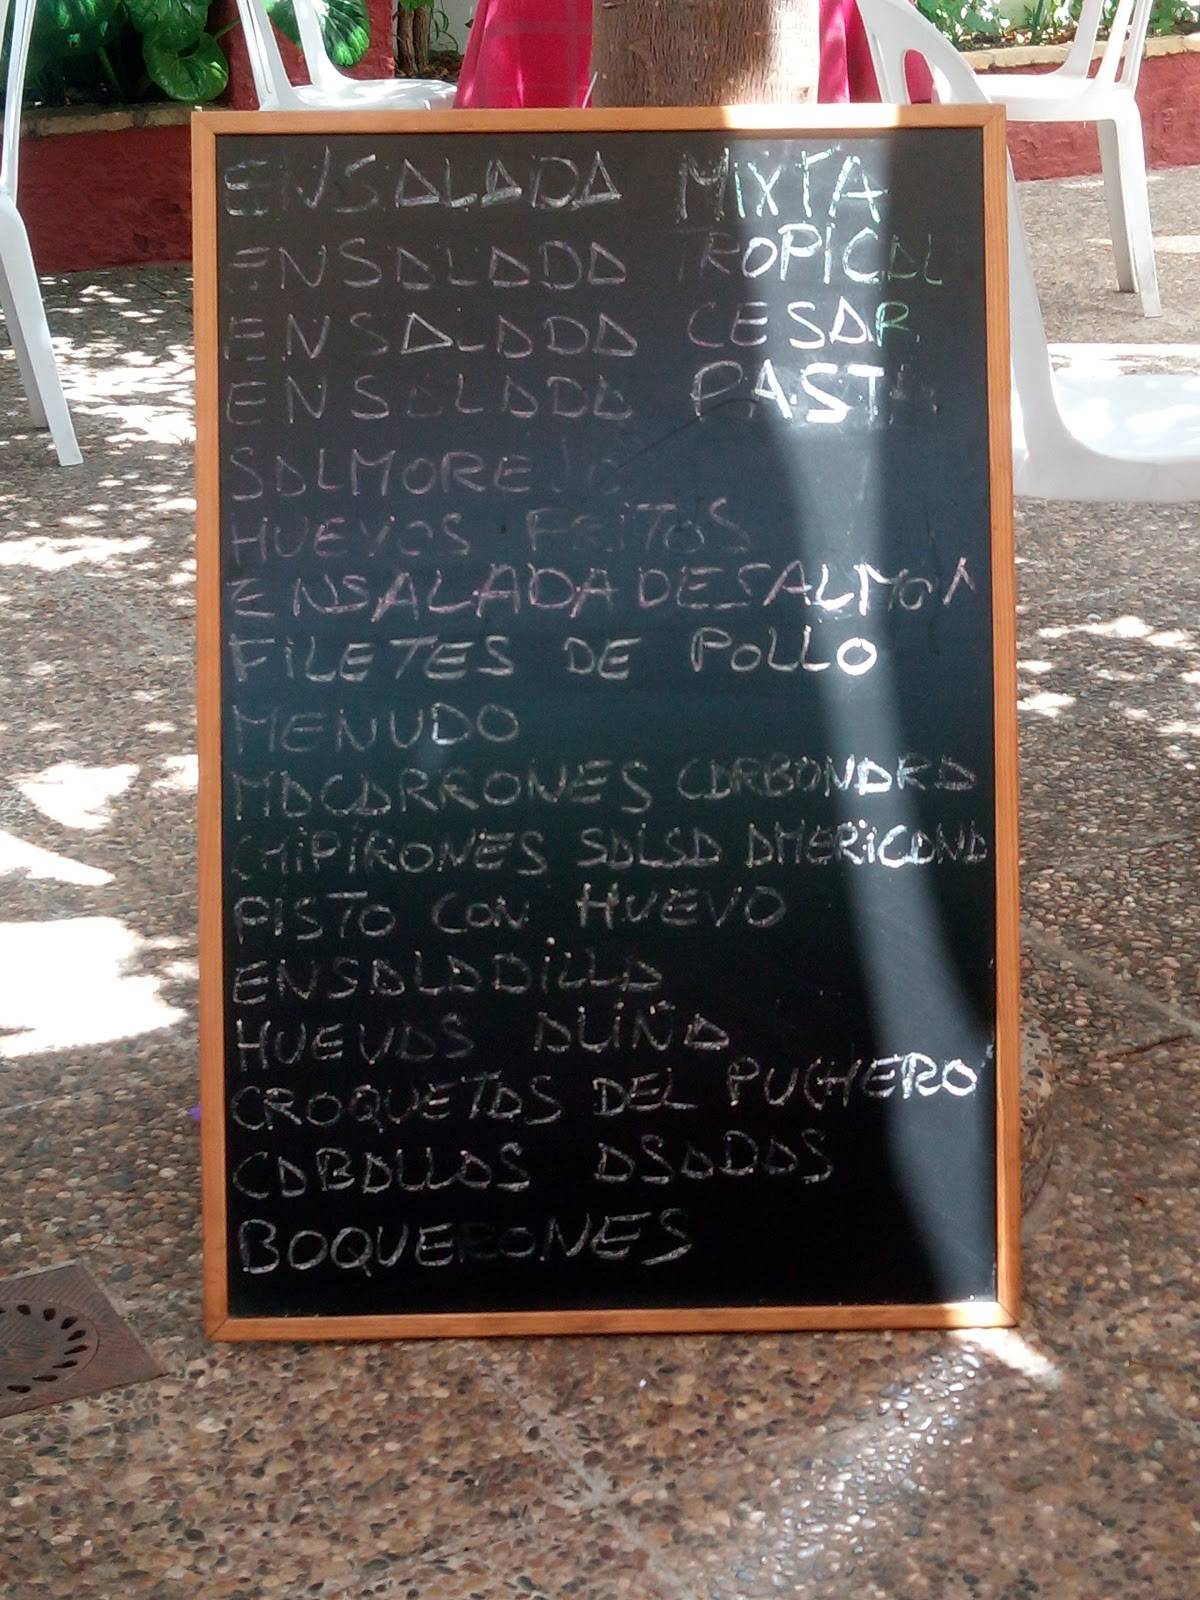 ENSALADA MIXTA
ENSALADA TROPICAL
ENSALADA CESAR
ENSALADA PASTA
SALMOREJO
HUEVOS FRITOS
ENSALADA DE SALMON
FILETES DE POLLO
MENUDO
MACARRONES CARBONARA
CHIPIRONES SALSA AMERICANA
PISTO CON HUEVO
ENSALADILLA
HUEVAS ALIÑA
CROQUETAS DEL PUCHERO
CABALLAS ASADAS
BOQUERONES